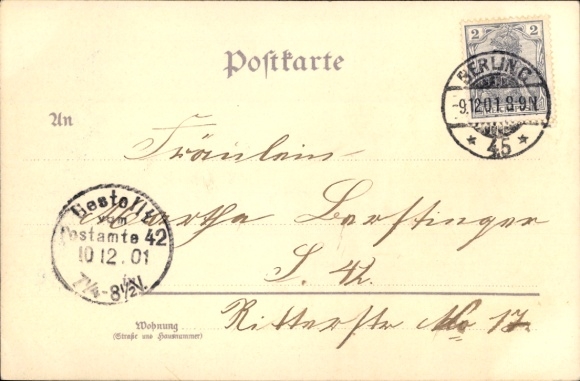 Postkarte
2
2
BERLIN C.
-9.12.01.8-9N.
* 45 *
An
Fräulein
Martha Berstinger
S. 42.
Ritterstr No 17.
Bestellt
vom
Postamte 42
10 12.01
7¼-8½V.
Wohnung
(Straße und Hausnummer)